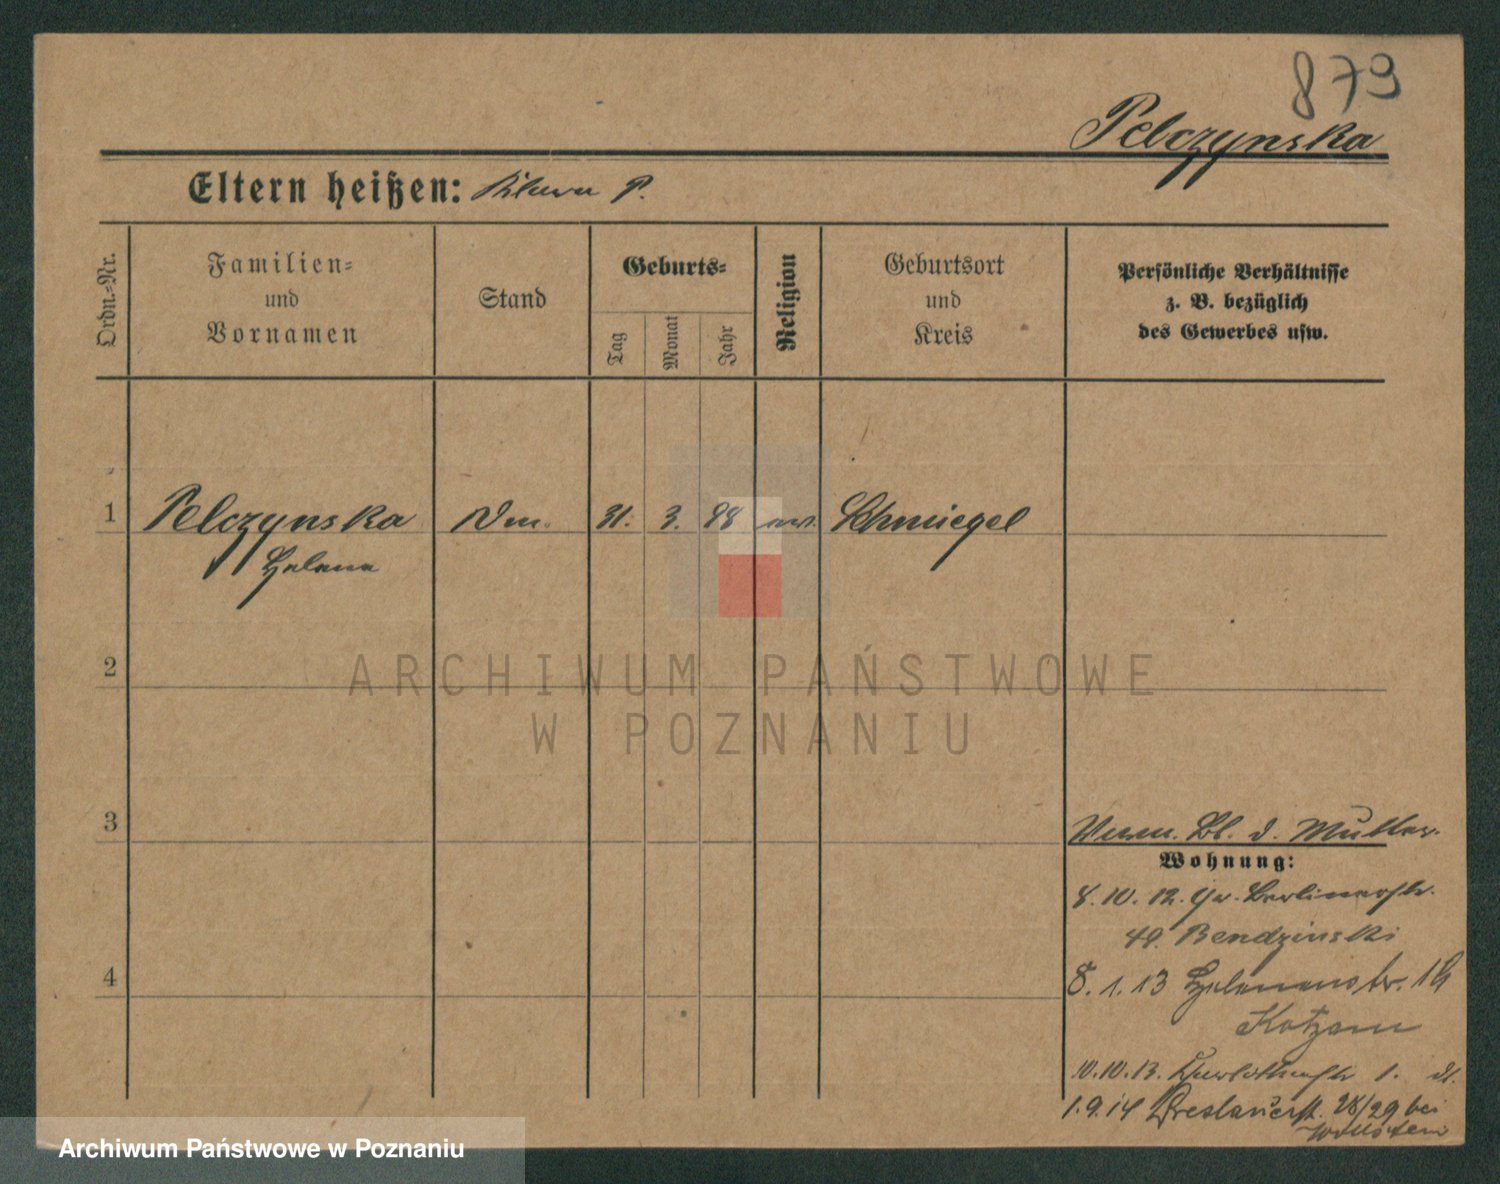 879
Pelczynska
Eltern heißen: P.
Ordn.-Nr.
Familien-
und
Vornamen
Stand
Geburts-
Tag
Monat
Jahr
Religion
Geburtsort
und
Kreis
Persönliche Verhältnisse
z. B. bezüglich
des Gewerbes usw.
1 Pelczynska 31. 3. 88 Schmiegel
Helena
2
ARCHIWUM PAŃSTWOWE
W POZNANIU
3
d. Mutter.
Wohnung:
8. 10. 12. Berlinerstr.
49. Bendzinski
4
8. 1. 13 Helenenstr.
10. 10. 13. 1.
1. 9. 14 Breslauerstr. 28/29 bei
Archiwum Państwowe w Poznaniu